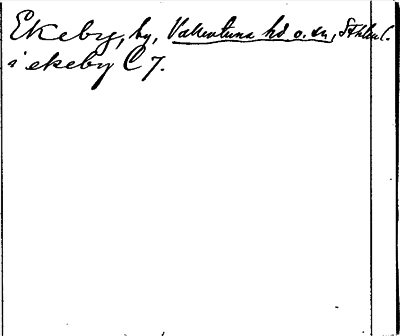 Ekeby, by, Vallentuna hd o. sn, Sthlm C.
i ekeby C 7.